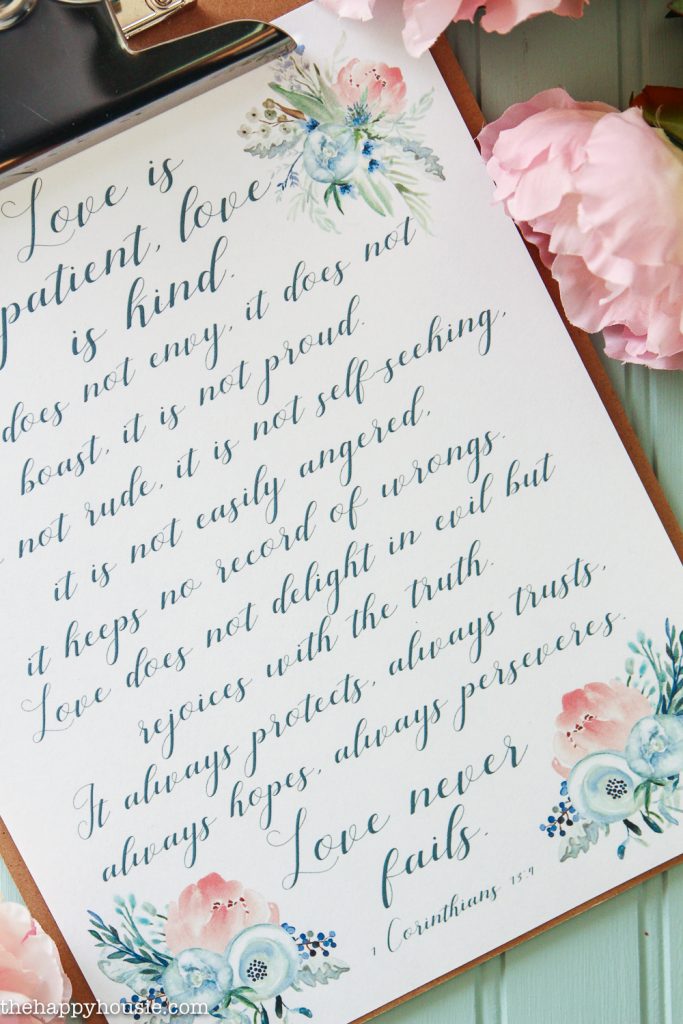 Love is
patient, love
is kind.
does not envy, it does not
boast, it is not proud.
not rude, it is not self-seeking,
it is not easily angered,
it keeps no record of wrongs.
Love does not delight in evil but
rejoices with the truth.
It always protects, always trusts,
always hopes, always perseveres.
Love never
fails.
1 Corinthians 13:4
thehappyhousie.com